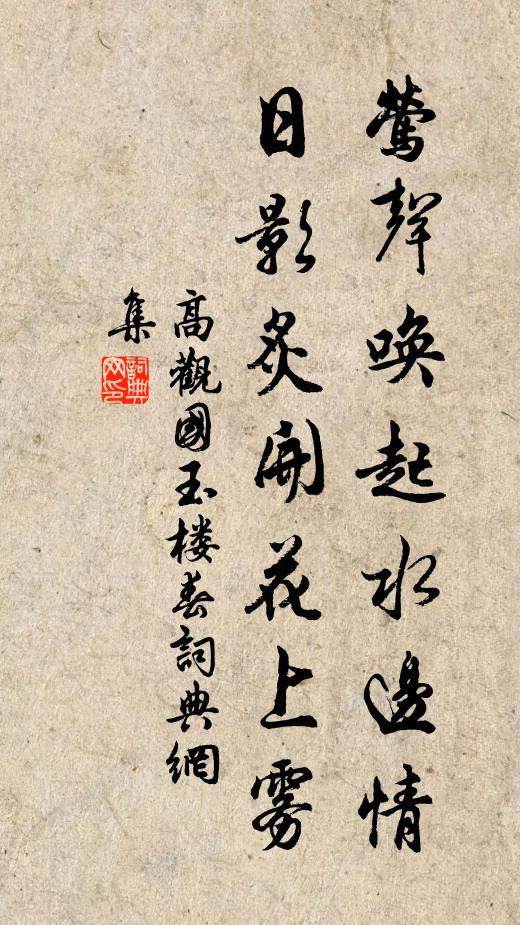 鶯聲喚起水邊情
日影炙開花上霧
高觀國玉楼春詞典網
集
詞典網印